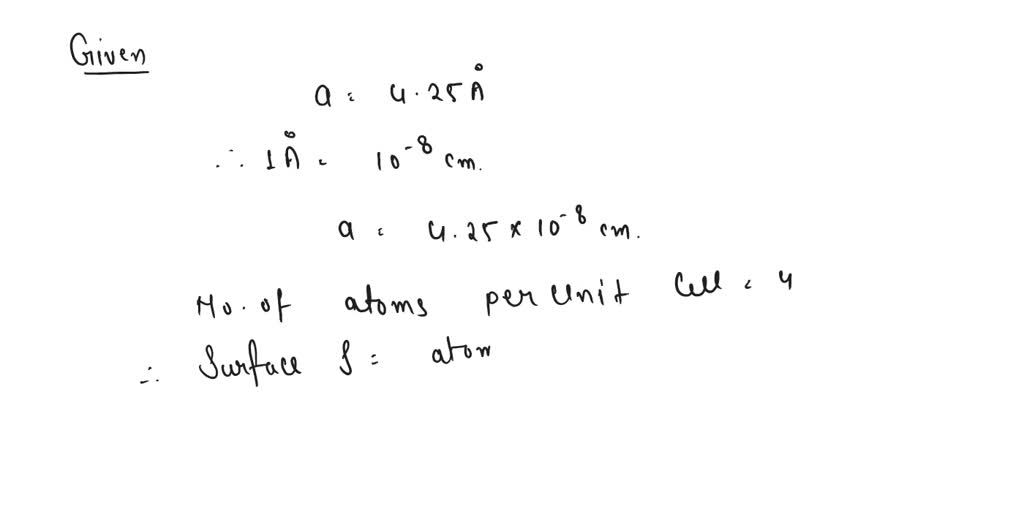 Given
a = 4.25 Å
∴ 1 Å = 10⁻⁸ cm.
a = 4.25 × 10⁻⁸ cm.
No. of atoms per Unit Cell = 4
∴ Surface S = atom